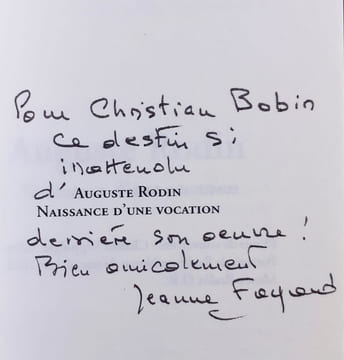 Pour Christian Bobin
ce destin si
inattendu
d' AUGUSTE RODIN
NAISSANCE D'UNE VOCATION
derrière son oeuvre !
Bien amicalement
Jeanne Fayard